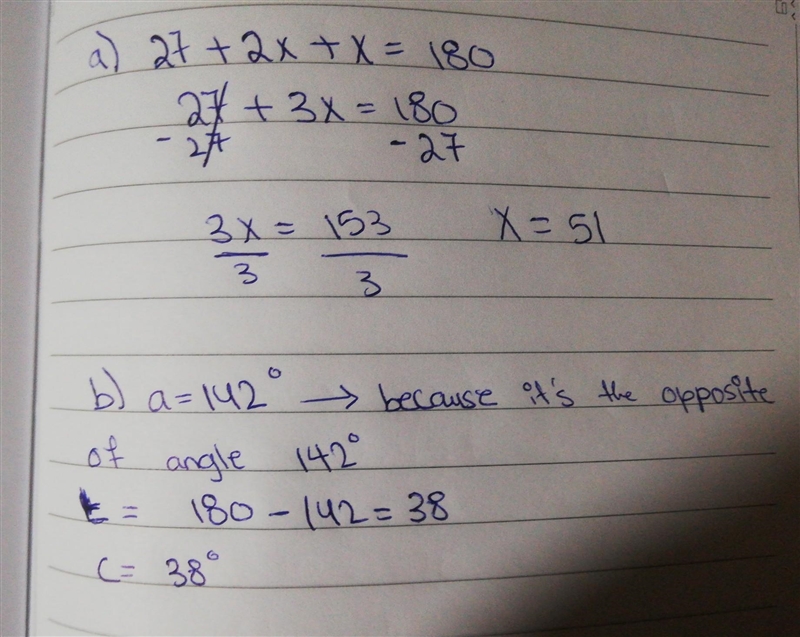 a) 27 + 2x + x = 180
27 + 3x = 180
- 27 - 27
3x = 153 x = 51
3 3
b) a = 142° → because it's the opposite
of angle 142°
= 180 - 142 = 38
c = 38°